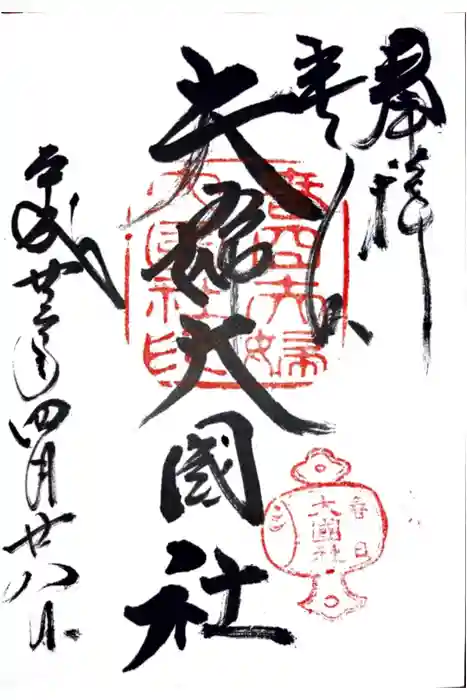 奉拝
春日
夫婦大國社
平成廿六年四月廿八日
春日夫婦大国社印
春日
大國社